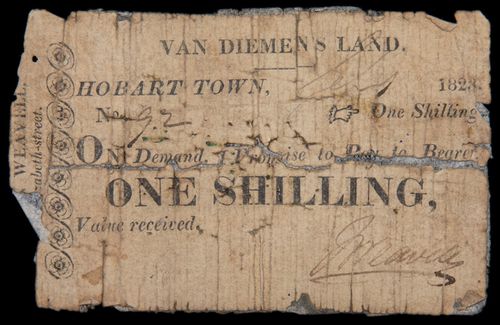 VAN DIEMEN'S LAND.
HOBART TOWN, 1823
No 92 One Shilling
ON Demand, I Promise to Pay to Bearer,
ONE SHILLING,
Value received.
WEAVELL,
zabeth-street.